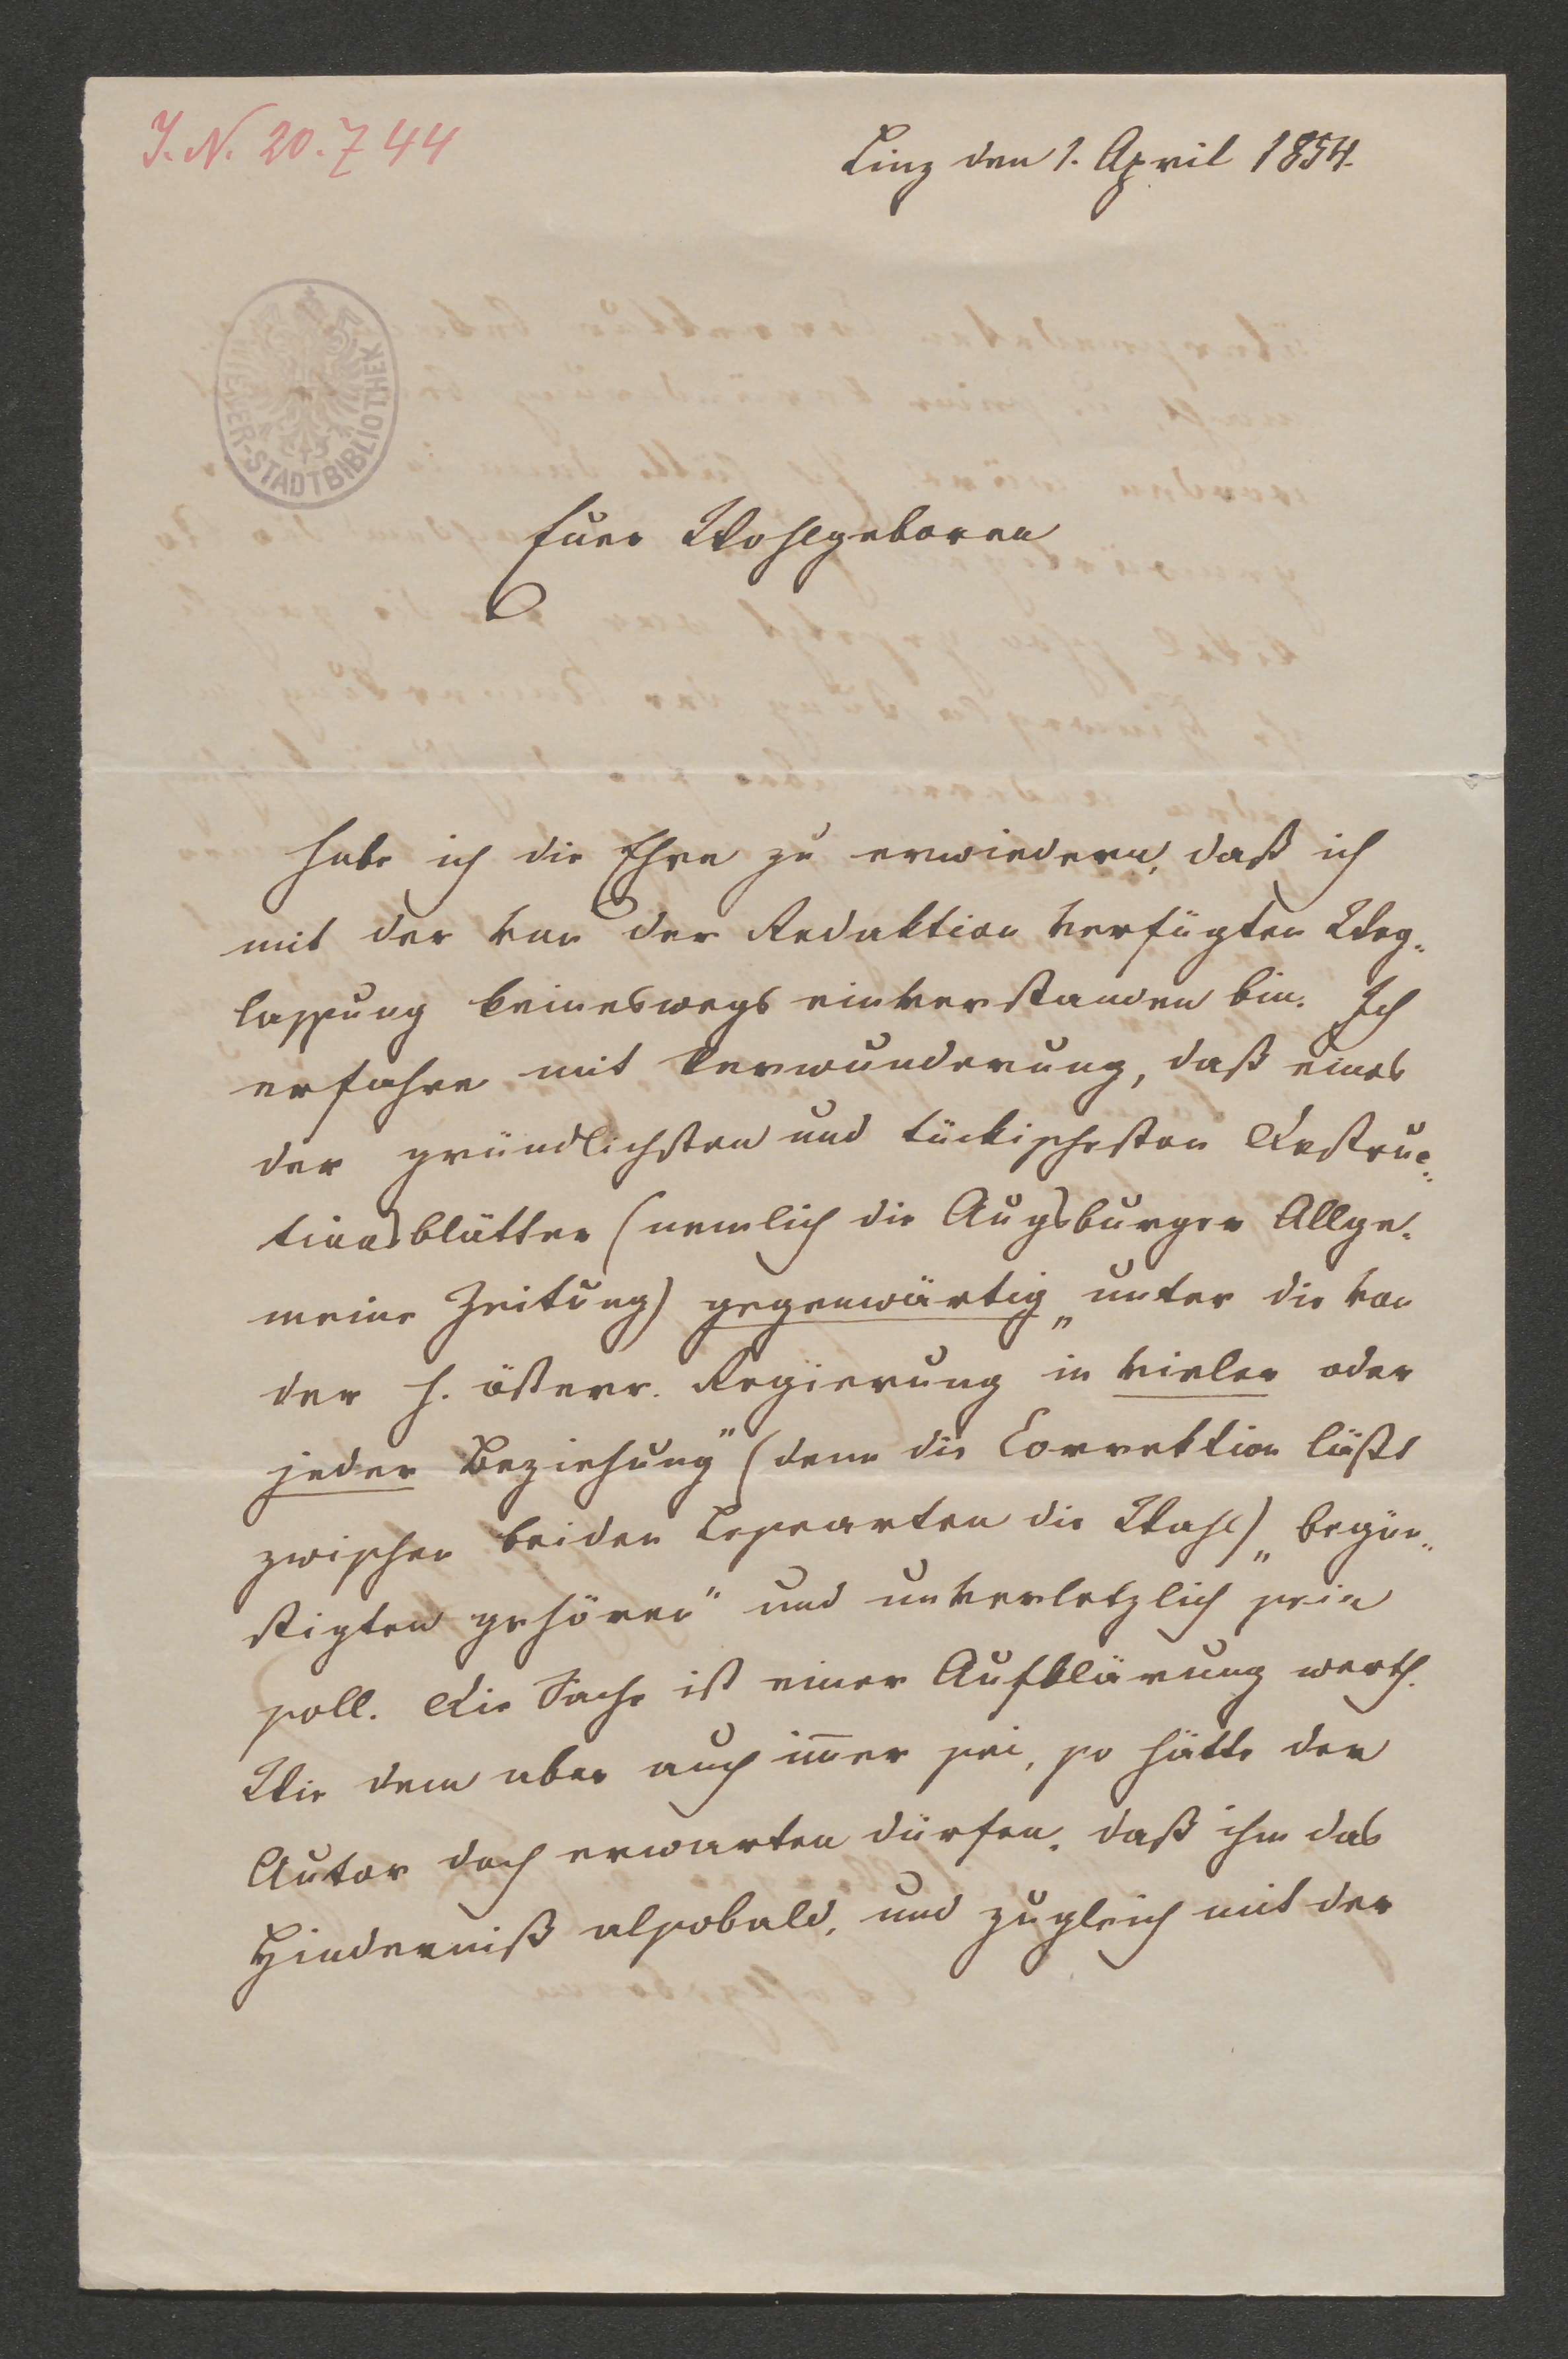 J. N. 20.744
Linz den 1. April 1854.
WIENER-STADTBIBLIOTHEK
Euer Wohlgeboren
habe ich die Ehre zu erwiedern, daß ich
mit der von der Redaktion verfügten Weg-
lassung keineswegs einverstanden bin. Ich
erfahre mit Verwunderung, daß eines
der gründlichsten und tückischesten Destruc-
tionsblätter (nemlich die Augsburger Allge-
meine Zeitung) gegenwärtig „unter die von
der h. österr. Regierung in vieler oder
jeder Beziehung" (denn die Correktion läßt
zwischen beiden Lesearten die Wahl) „begün-
stigten gehören" und unverletzlich sein
soll. Die Sache ist einer Aufklärung werth.
Wie dem aber auch im̅er sei, so hätte der
Autor doch erwarten dürfen, daß ihm das
Hinderniß alsobald, und zugleich mit der